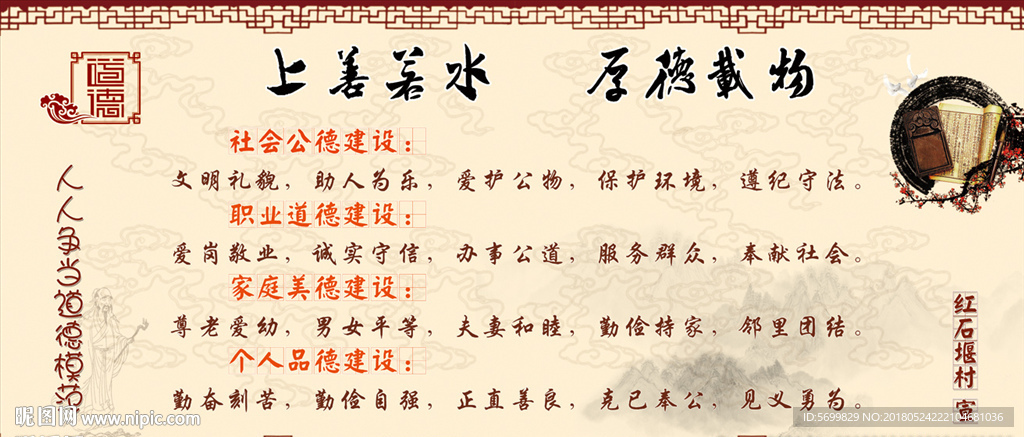 上善若水 厚德载物
道德
社会公德建设：
文明礼貌，助人为乐，爱护公物，保护环境，遵纪守法。
职业道德建设：
爱岗敬业，诚实守信，办事公道，服务群众，奉献社会。
家庭美德建设：
尊老爱幼，男女平等，夫妻和睦，勤俭持家，邻里团结。
个人品德建设：
勤奋刻苦，勤俭自强，正直善良，克己奉公，见义勇为。
人人争当道德模范
红石堰村 宣
昵图网 www.nipic.com
ID:5699829 NO:20180524222104681036